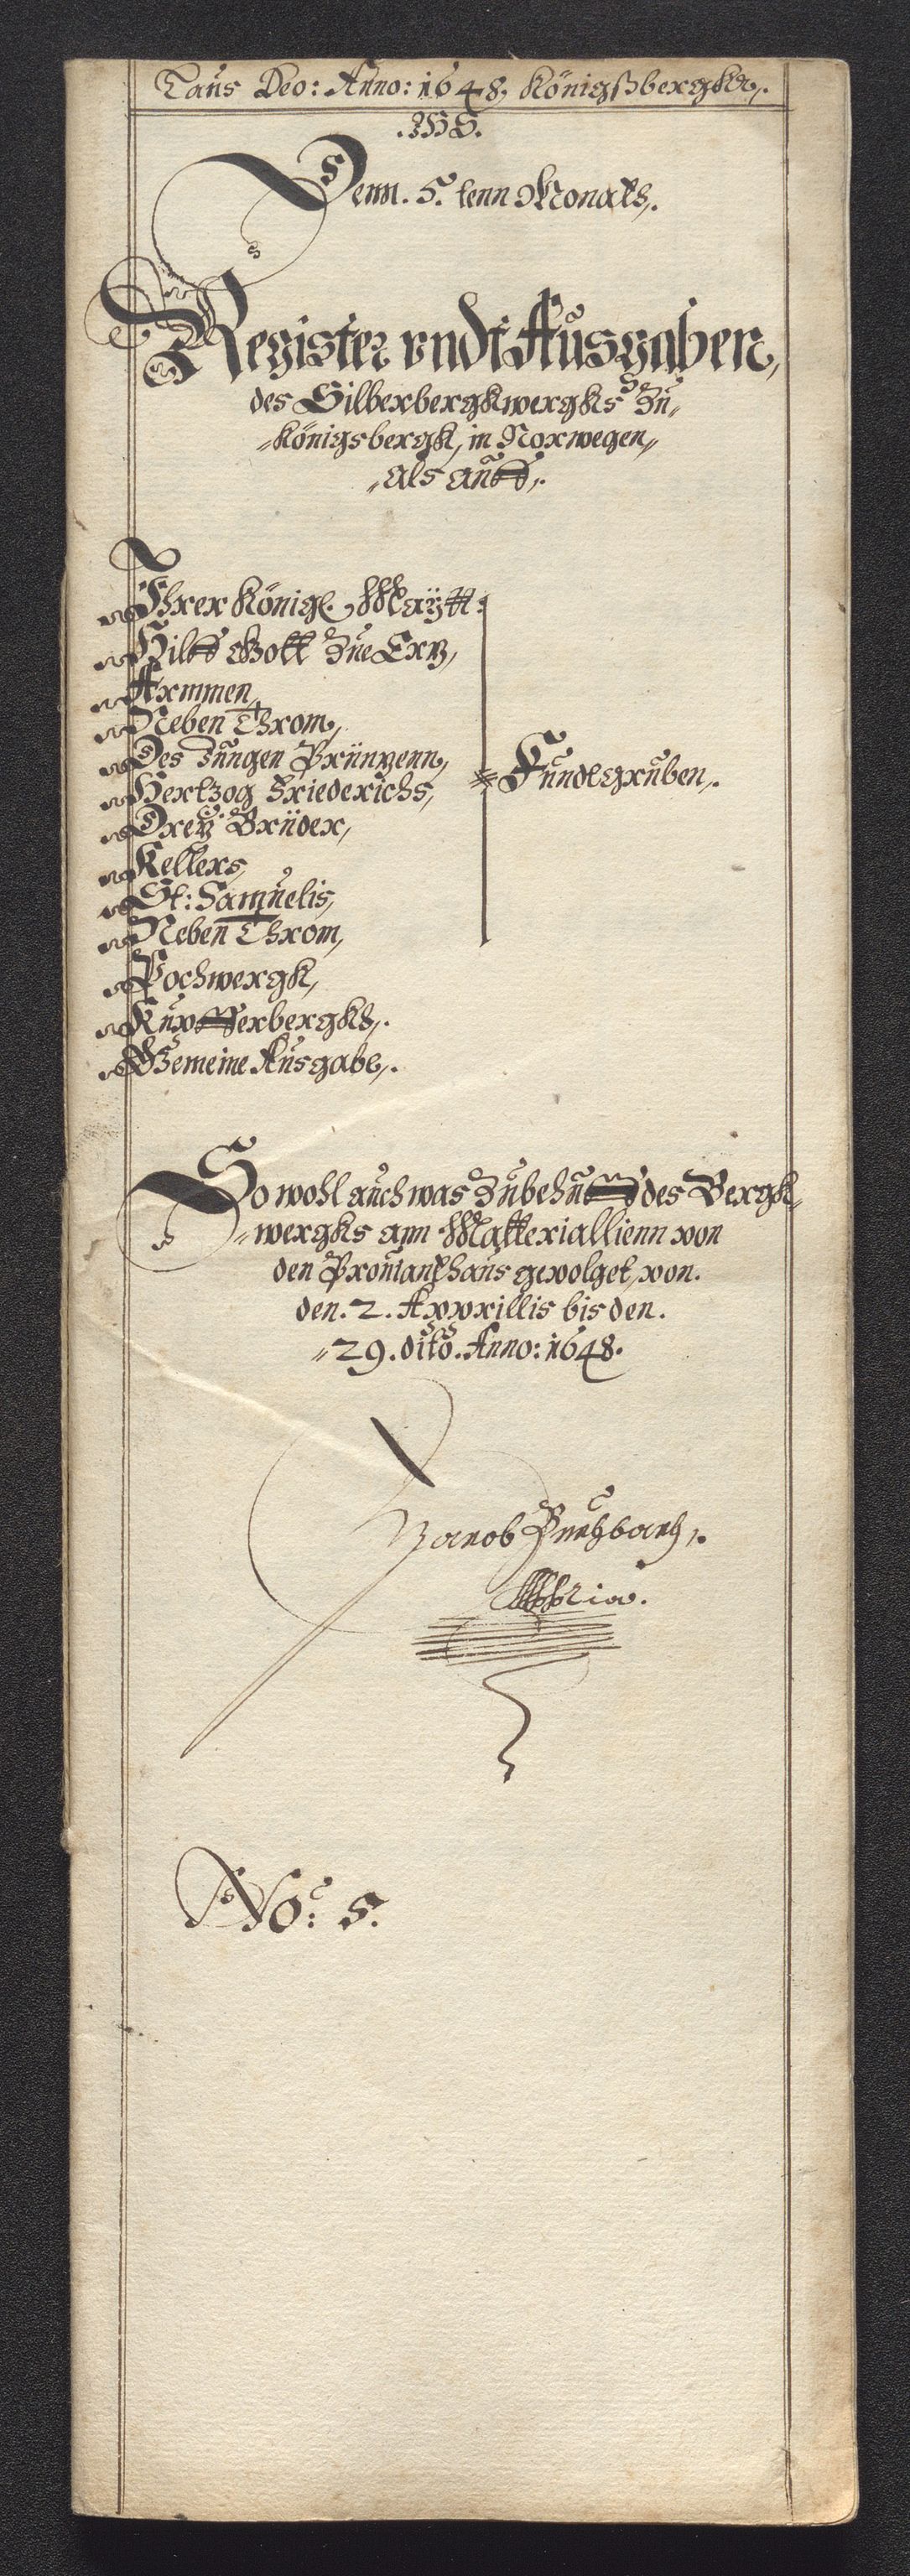 Laus Deo: Anno: 1648, Königßbergk
.IHS.
Denn. 5. tenn Monats,.
Register vndt Ausgaben,
des Silberbergkwergks Zu„
„Königsbergk, in Norwegen„
„als auff,.
Ihrer Königl. Maÿtt:
Hilff Gott Zue Ertz,
Armmen,
Neben Throm,
Des Jungen Printzenn,
Hertzog Friederichs,
Fundtgruben,.
Dreÿ Brüder,
Kellers,
St: Samuelis,
Neben Throm,
Pochwergk,
Kupfferbergks,.
Gemeine Ausgabe,.
So wohl auch was Zu behuff des Bergk„
„wergks ann Matteriallienn von
den Proviantthaus gevolget, von.
den. 2. Apprillis bis den.
„29. dito. Anno: 1648.
Jacob
No: 5.